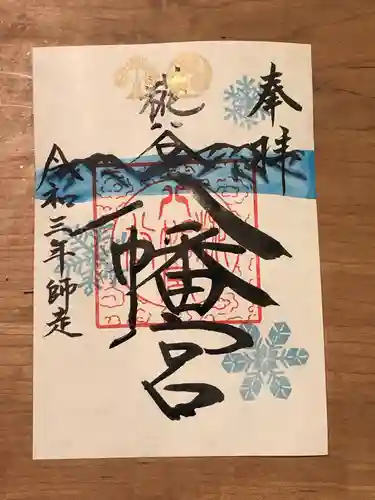 奉拝
八幡宮
令和三年師走